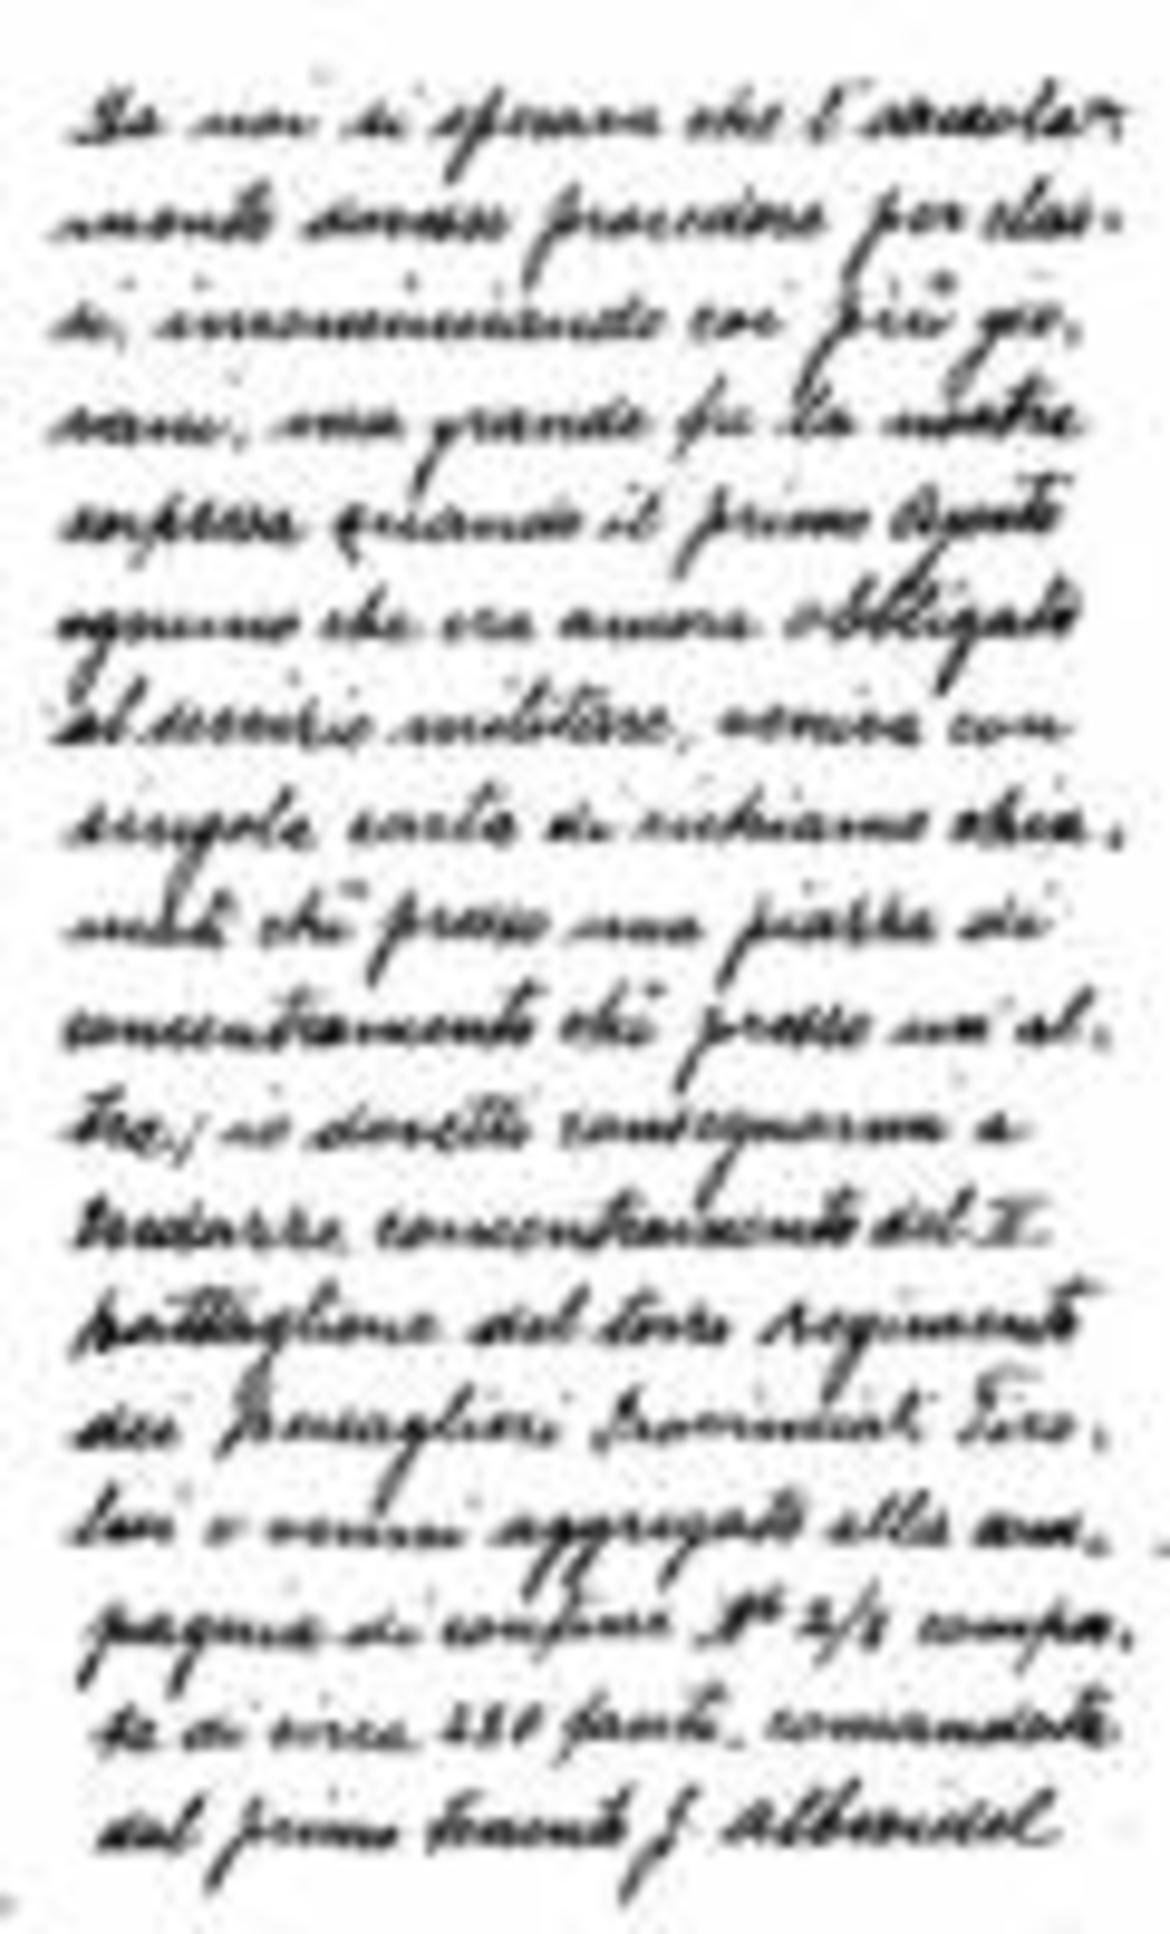 Da noi si sperava che l'arruola-
mento dovesse procedere per clas-
si, incominciando coi più gio-
vani, ma grande fu la nostra
sorpresa quando il primo Agosto
ognuno che era ancora obbligato
al servizio militare, veniva con
singola carta di richiamo chia-
mati chi presso una piazza di
concentramento chi presso un'al-
tra; io dovetti consegnarmi a
concentramento del II.
battaglione del terzo regimento
dei bersaglieri provinciali Tiro-
lesi e venni aggregato alla com-
pagnia di confine No 2/8 compos-
ta di circa 280 fanti, comandata
dal primo tenente J.